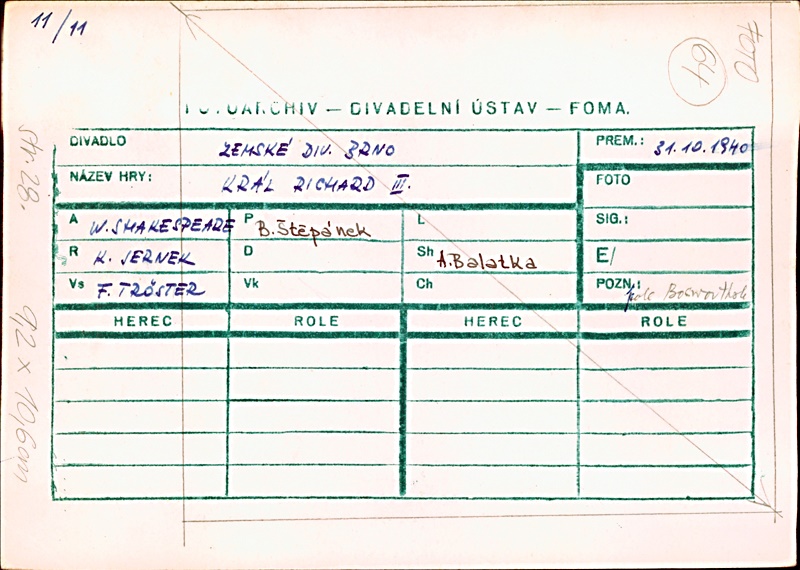 11/11
FOTO
64
FOTOARCHIV — DIVADELNÍ ÚSTAV — FOMA.
DIVADLO ZEMSKÉ DIV. BRNO PREM.: 31.10.1940
NÁZEV HRY: KRÁL RICHARD III. FOTO
A W. SHAKESPEARE P B. Štěpánek L SIG.:
R K. JERNEK D Sh A. Balatka E/
Vs F. TRÖSTER Vk Ch POZN.: pole
HEREC ROLE HEREC ROLE
str. 28.
9,2 x 10,6 cm